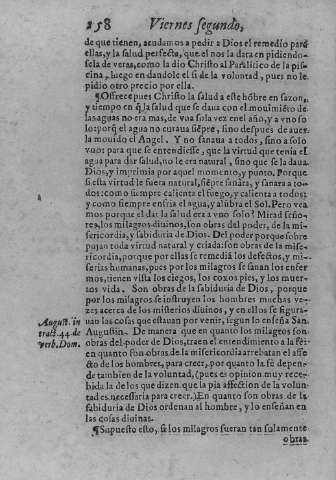 258 Viernes segundo,
de que tienen, acudamos a pedir a Dios el remedio para
ellas, y la salud perfecta, que el nos la dara en pidiendo-
sela de veras, como la dio Christo al Paralitico de la pis-
cina, luego en dandole el si de la voluntad, pues no le
pidio otro precio por ella.
¶Ofrece pues Christo la salud a este hõbre en sazon,
y tiempo en q̃ la salud que se daua con el mouimiẽto de
las aguas no era mas, de vna sola vez en el año, y a vno so
lo: porq̃ el agua no curaua siẽpre, sino despues de auer-
la mouido el Angel. Y no sanaua a todos, sino a solo
vno: para que se entendiesse, que la virtud que tenia el
agua para dar salud, no le era natural, sino que se la daua
Dios, y imprimia por aquel momento, y punto. Porque
si esta virtud le fuera natural, siẽpre sanára, y sanara a to-
dos: como siempre calienta el fuego, y calienta a todos:
y como siempre enfria el agua, y alũbra el Sol. Pero vea
mos porque el dar la salud era a vno solo? Mirad seño-
res, los milagros diuinos, son obras del poder, de la mi-
sericordia, y sabiduria de Dios. Del poder porque sobre
pujan toda virtud natural y criada: son obras de la mise-
ricordia, porque por ellas se remediã los defectos, y mi-
serias humanas, pues por los milagros se sanan los enfer
mos, tienen vista los ciegos, los coxos pies, y los muer-
tos vida. Son obras de la sabiduria de Dios, porque
por los milagros se instruyen los hombres muchas ve-
zes acerca de los misterios diuinos, y en ellos se figura-
uan las cosas que estauan por venir, segun lo enseña San
Augustin. De manera que en quanto los milagros son
obras del poder de Dios, traen el entendimiento a la fè: i
en quanto son obras de la misericordia arrebatan el affe
cto de los hombres, para creer, por quanto la fè depen-
de tambien de la voluntad, (pues es opinion muy rece-
bida la de los que dizen que la pia affection de la volun-
tad es necessaria para creer.) En quanto son obras de la
sabiduria de Dios ordenan al hombre, y lo enseñan en
las cosas diuinas.
¶Supuesto esto, si los milagros fueran tan solamente
obras
August. in
tract. 44. de
verb. Dom.